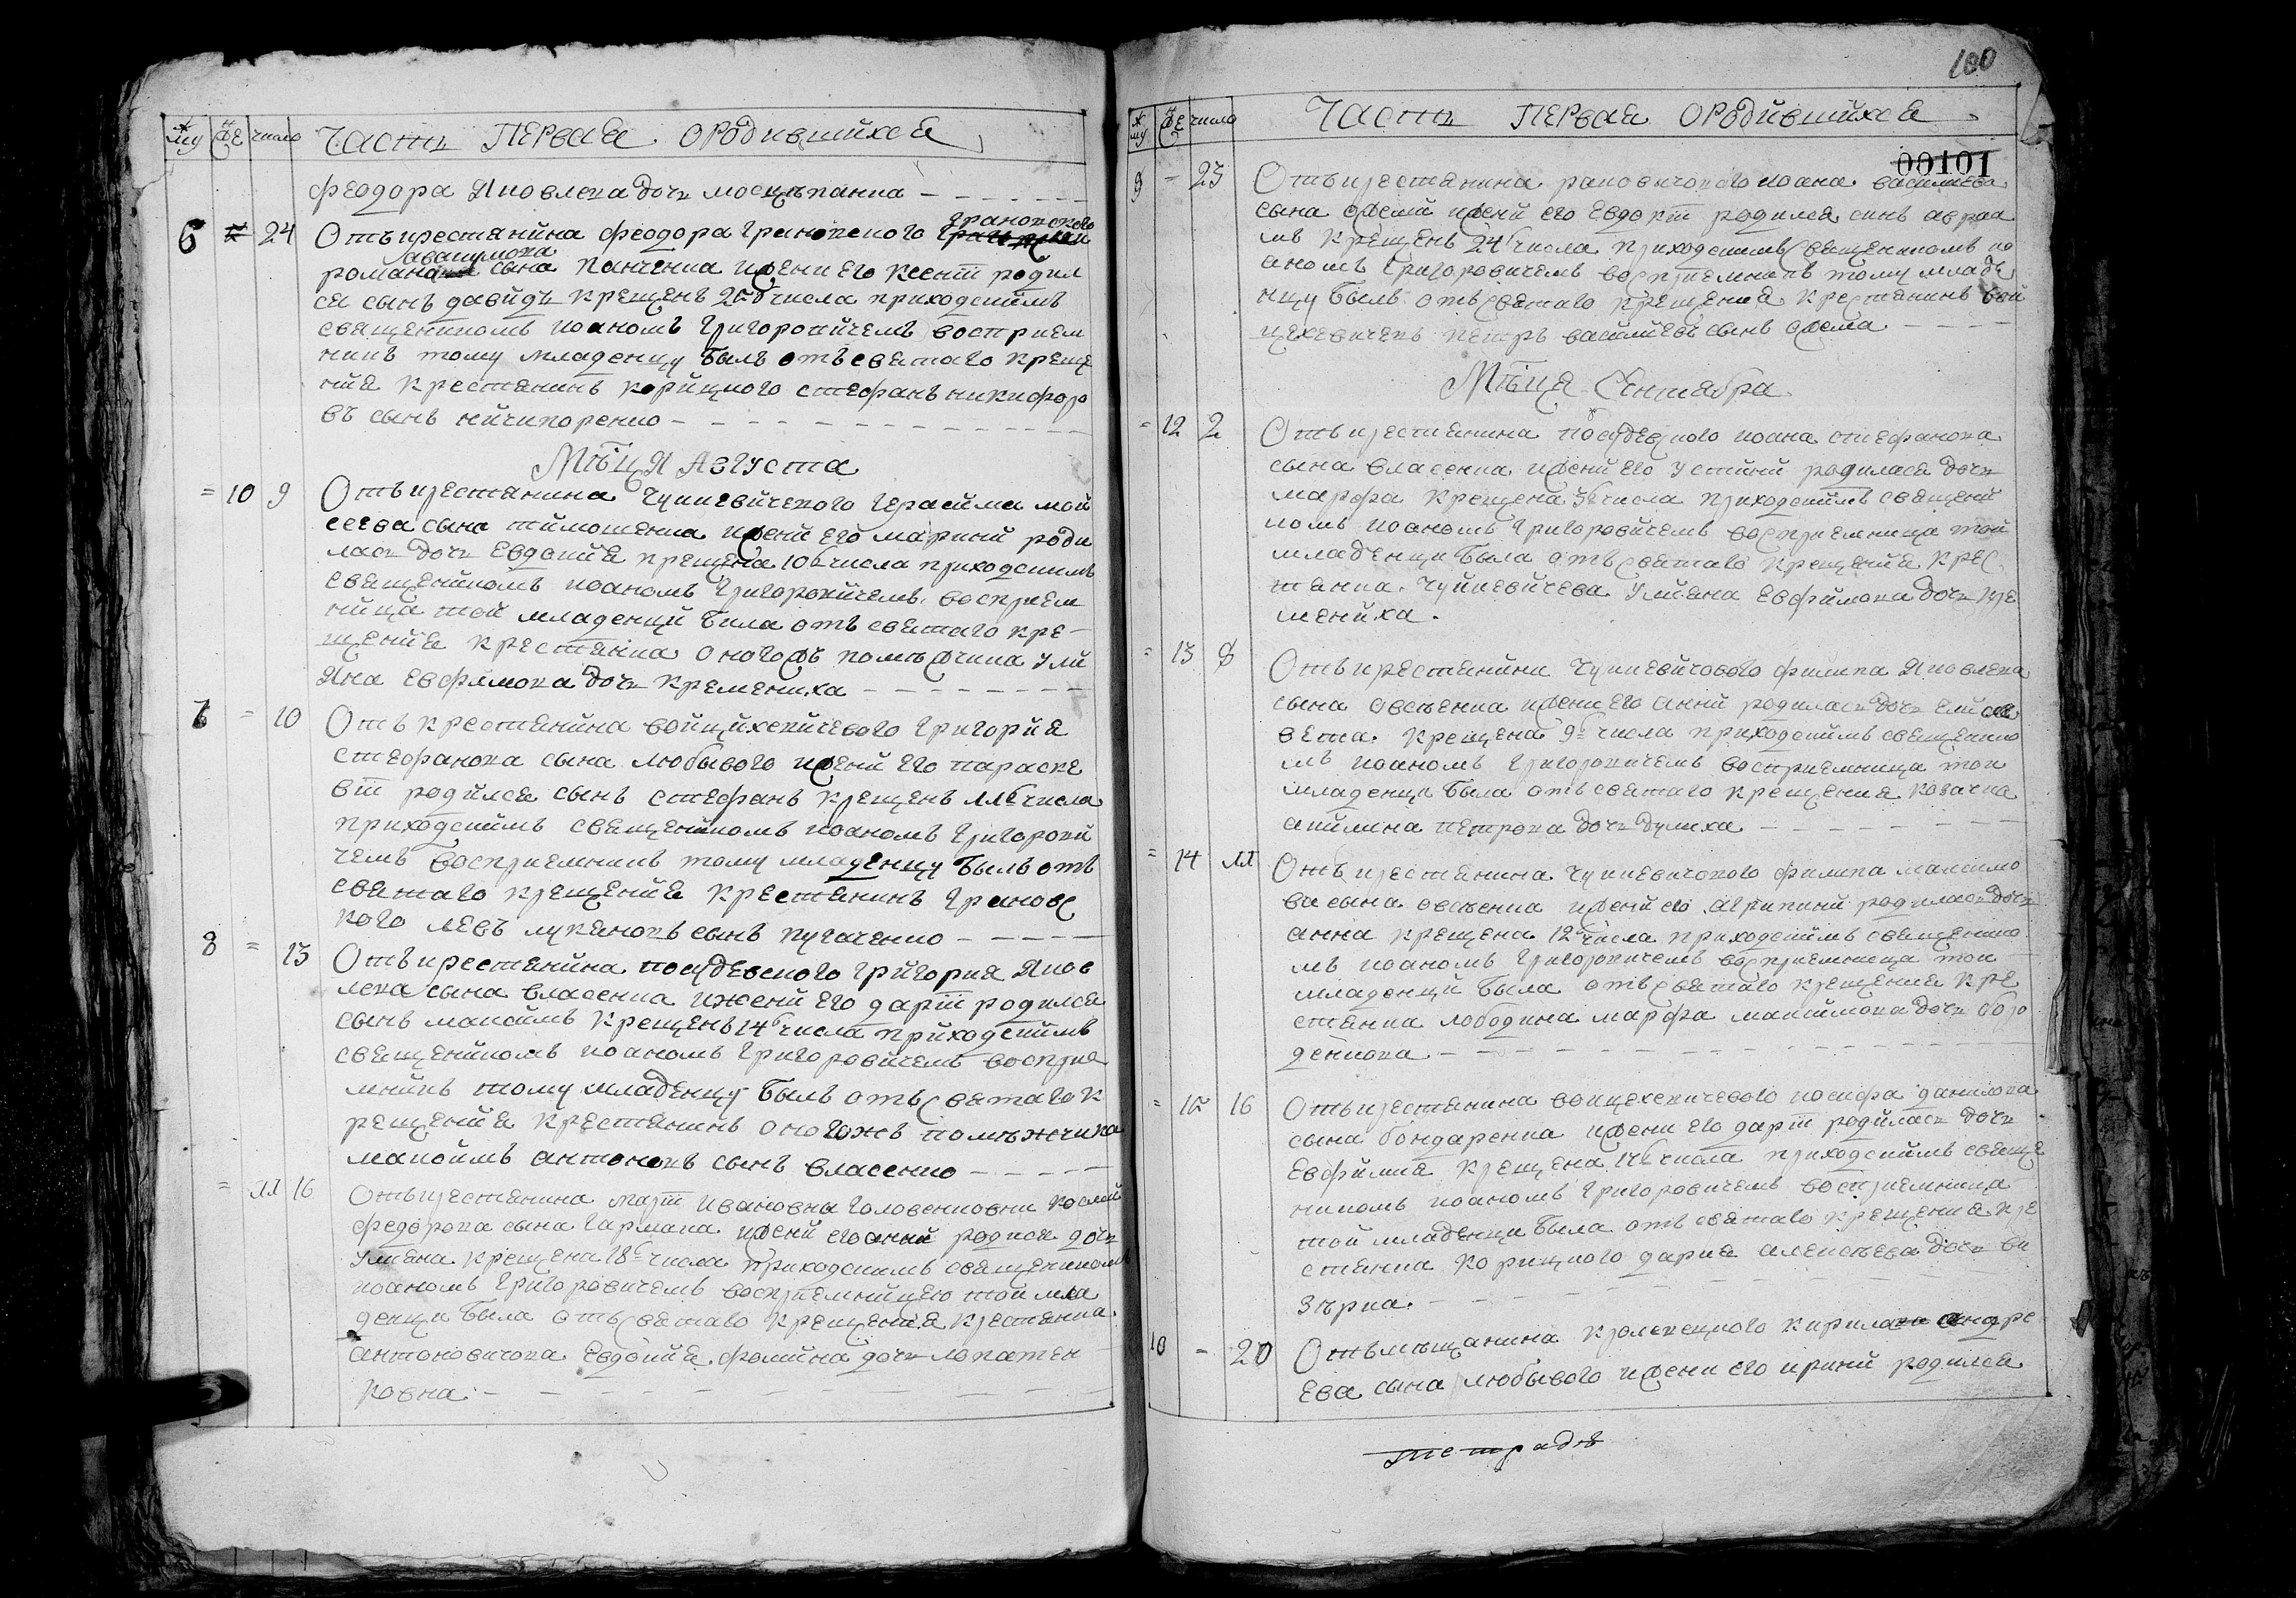 му же число Часть первая ородившихся
феодора Яковлева дочь москъпанка
6 = 24 Отъ крестянина феодора грановского грановского
романа савашумова сына панченка ижени его ксенїи родил
ся сынъ давидъ крещенъ 25 числа приходскимъ
священникомъ иоаномъ григоровичемъ восприем
никъ тому младенцу былъ отъ святаго креще
ния крестянинъ корицкого стефанъ никифоро
въ сынъ ничипоренко
Мѣсця Августа
= 10 9 Отъ крестянина Чуйкевичского герасима мой
сеева сына тимошенка ижени его марини роди
лась дочь Евдокия крещена 10 числа приходскимъ
священникомъ иоаномъ григоровичемъ, восприем
ница той младенци была отъ святаго кре
щения крестянка оногожъ помѣжчика Ули
Яна Евфимова дочь кремениха
7 = 10 Отъ крестянина войцихевичевого григория
стефанова сына любывого ижени его параске
вїи родился сынъ стефанъ крещенъ 11 числа
приходскимъ священникомъ иоаномъ григорови
чемъ восприемникъ тому младенцу былъ отъ
святаго крещения крестянинъ грановс
кого левъ лукяновъ сынъ пугаченко
8 = 13 Отъ крестянина посудевского григория Яков
лева сына власенка ижени его дарїи родился
сынъ максимъ крещенъ 14 числа приходскимъ
священникомъ иоаномъ григоровичемъ восприе
мникъ тому младенцу былъ отъ святаго к
рещения крестянинъ оногожъ помѣжчика
максимъ антоновъ сынъ власенко
= 11 16 Отъ крестянина марїи ивановна головенковни
федорова сына гармаша ижени его анни родися дочь
Улияна крещена 18 числа приходскимъ священникомъ
иоаномъ григоровичемъ восприемницею той мла
денци была отъ святаго крещения крестянка
антоновичова Евдокия фомина дочь лопатен
ковна
100
му же число Часть первая ородившихся
00101
9 = 23 Отъ крестянина раковичового иоана василиева
сына ижени его Евдокїи родился синъ авраа
мъ крещенъ 24 числа приходскимъ священникомъ ио
аномъ григоровичемъ восприемникъ тому младе
нцу былъ отъ святаго крещения крестянинъ вой
цехевичевъ петръ василиевъ сынъ
Мѣсця Сентября
= 12 2 Отъ крестянина посудевского иоана стефанова
сына власенка ижени его устини родилася дочь
марфа крещена 3 числа приходскимъ священни
комъ иоаномъ григоровичемъ восприемница той
младенци была отъ святаго крещения крес
тянка Чуйкевичева Улияна Евфимова дочь кре
мениха.
= 13 8 Отъ крестянина Чуйкевичового филипа Яковлева
сына овсѣенка ижени его анни родилась дочь елиса
вета. крещена 9 числа приходскимъ священнико
мъ иоаномъ григоровичемъ восприемница той
младенци была отъ святаго крещения козачка
акилина петрова дочь дулиха
= 14 11 Отъ крестянина Чуйкевичового филипа максимо
ва сына овсѣенка ижени его агрипини родилась дочь
анна крещена 12 числа приходскимъ священико
мъ иоаномъ григоровичемъ восприемница той
младенци была отъ святаго крещения кре
стянка лободина марфа максимова дочь боро
денкова
= 15 16 Отъ крестянина войцехевичевого иосифа данилова
сына бондаренка ижени его дарїи родилась дочь
Евфимия крещена 17 числа приходскимъ свяще
никомъ иоаномъ григоровичемъ восприемница
той младенци была отъ святаго крещения кре
стянка корицкого дария алексѣева дочь
зѣрка.
10 = 20 Отъ мѣщанина кролевецкого кирила андре
Ева сына любывого ижени его ирини родился
тетрадь